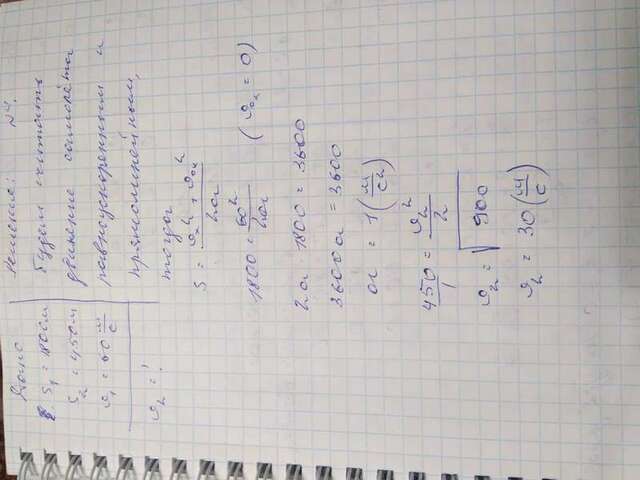 Дано
S₁ = 180см
S₂ = 450м
υ₁ = 60 м/с
υ₂ = ?
Решение: №4.
Будем считать
движение самолёта
равноускоренным и
прямолинейным,
тогда
S = (υₓ² - υ₀ₓ²)/2a
1800 = 60²/2a (υ₀ₓ = 0)
2a · 1800 = 3600
3600a = 3600
a = 1 (м/с²)
450/1 = υ₂²/2
υ₂ = √900
υ₂ = 30 (м/с)